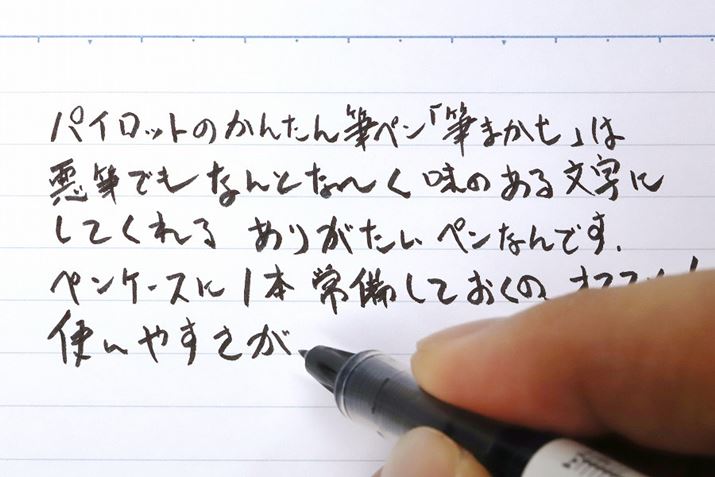 パイロットのかんたん筆ペン「筆まかせ」は
悪筆でもなんとな〜く味のある文字に
してくれる ありがたいペンなんです.
ペンケースに1本常備しておくの、オススメ!
使いやすさが